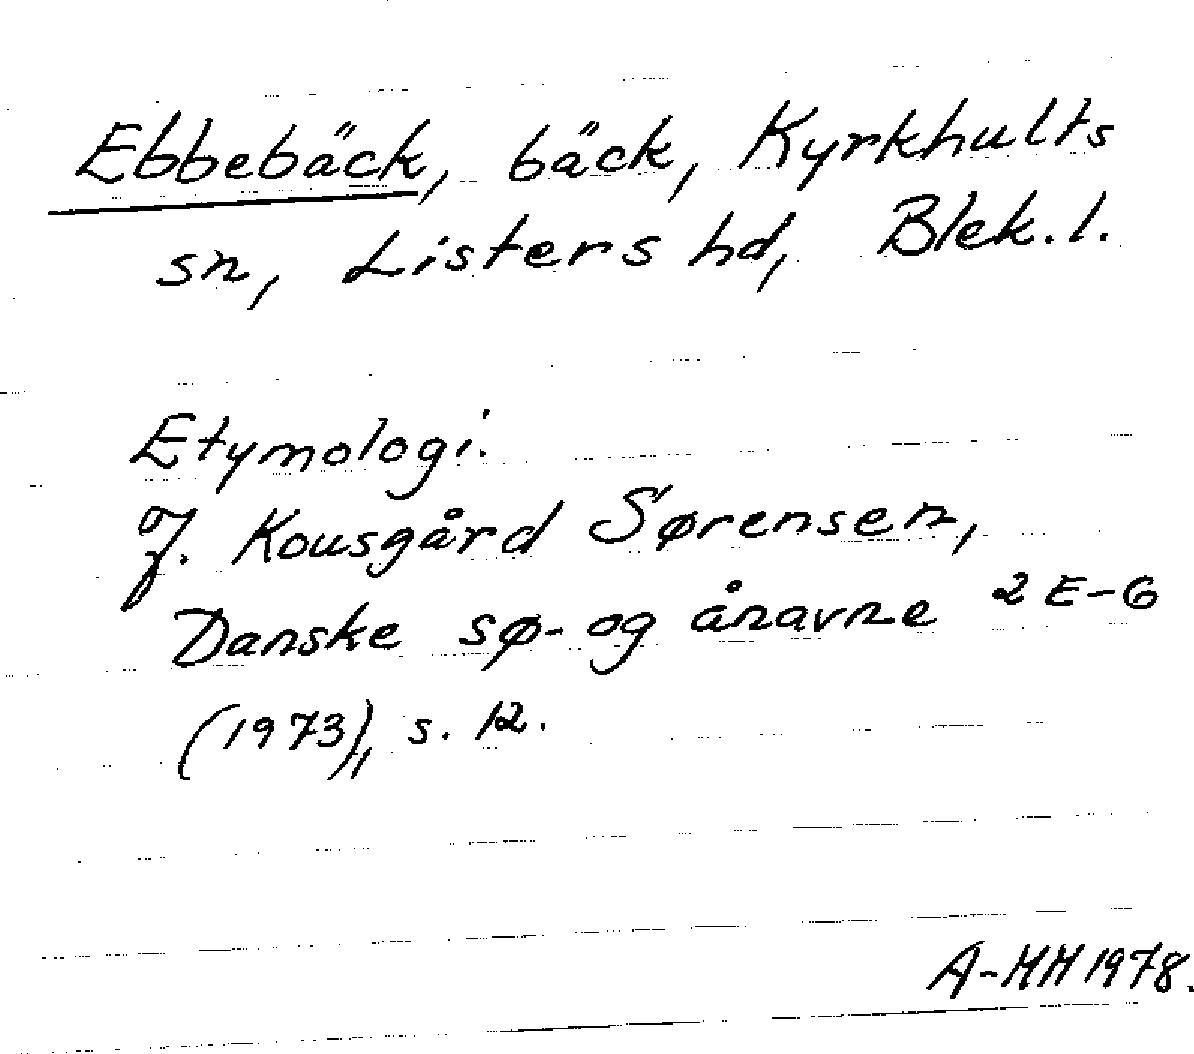 Ebbebäck, bäck, Kyrkhults
sn, Listers hd, Blek.l.
Etymologi.
J. Kousgård Sørensen,
Danske sø- og ånavne 2 E-G
(1973), s. 12.
A-MM 1978.